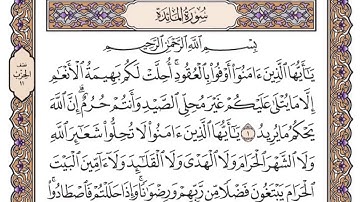 سُورَةُ المَائِدَةِ
بِسْمِ اللَّهِ الرَّحْمَٰنِ الرَّحِيمِ
يَٰٓأَيُّهَا الَّذِينَ ءَامَنُوٓا۟ أَوْفُوا۟ بِالْعُقُودِ ۚ أُحِلَّتْ لَكُم بَهِيمَةُ الْأَنْعَٰمِ
إِلَّا مَا يُتْلَىٰ عَلَيْكُمْ غَيْرَ مُحِلِّى الصَّيْدِ وَأَنتُمْ حُرُمٌ ۗ إِنَّ اللَّهَ
يَحْكُمُ مَا يُرِيدُ ١ يَٰٓأَيُّهَا الَّذِينَ ءَامَنُوا۟ لَا تُحِلُّوا۟ شَعَٰٓئِرَ اللَّهِ
وَلَا الشَّهْرَ الْحَرَامَ وَلَا الْهَدْىَ وَلَا الْقَلَٰٓئِدَ وَلَآ ءَآمِّينَ الْبَيْتَ
الْحَرَامَ يَبْتَغُونَ فَضْلًا مِّن رَّبِّهِمْ وَرِضْوَٰنًا ۚ وَإِذَا حَلَلْتُمْ فَاصْطَادُوا۟ ۚ
نصف
الحزب
١١